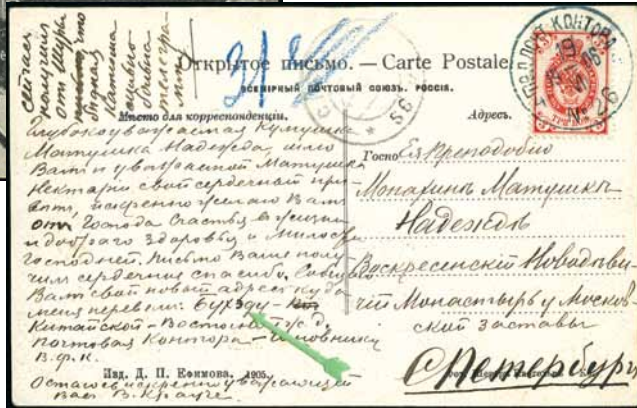 Сейчас
получил
от Шуры
что
бедная
Капочка
сильно
больна
телегра-
мму
31 8
Открытое письмо. — Carte Postale.
ВСЕМІРНЫЙ ПОЧТОВЫЙ СОЮЗЪ. РОССІЯ.
Мѣсто для корреспонденціи.
Адресъ.
Глубокоуважаемая Кумушка
Матушка Надежда, шлю
Вам и уважаемой Матушке
Нектарии свой сердечный при-
вет, искренно желаю Вам
от Господа Счастья в жизни
и добраго здоровья и милости
Господней. Письмо Ваше полу-
чил сердечное спасибо. Сообщаю
Вам свой новый адрес куда
меня перевели: Бухэду –
Китайской – Восточной ж. д.
почтовая Контора – Чиновнику
В. ф. К.
Остаюсь искренно уважающий
Вас В. Краузе.
Изд. Д. П. Ефимова. 1905.
Госпо Ея Преподобію
Монахинѣ Матушкѣ
Надеждѣ
Воскресенскій Новодѣви-
чій Монастырь у Москов-
ской заставы
С Петербургъ
ГОР. ПОЧТ. КОНТОРА
19
VI
06
N. 26
ТРИ КОП.